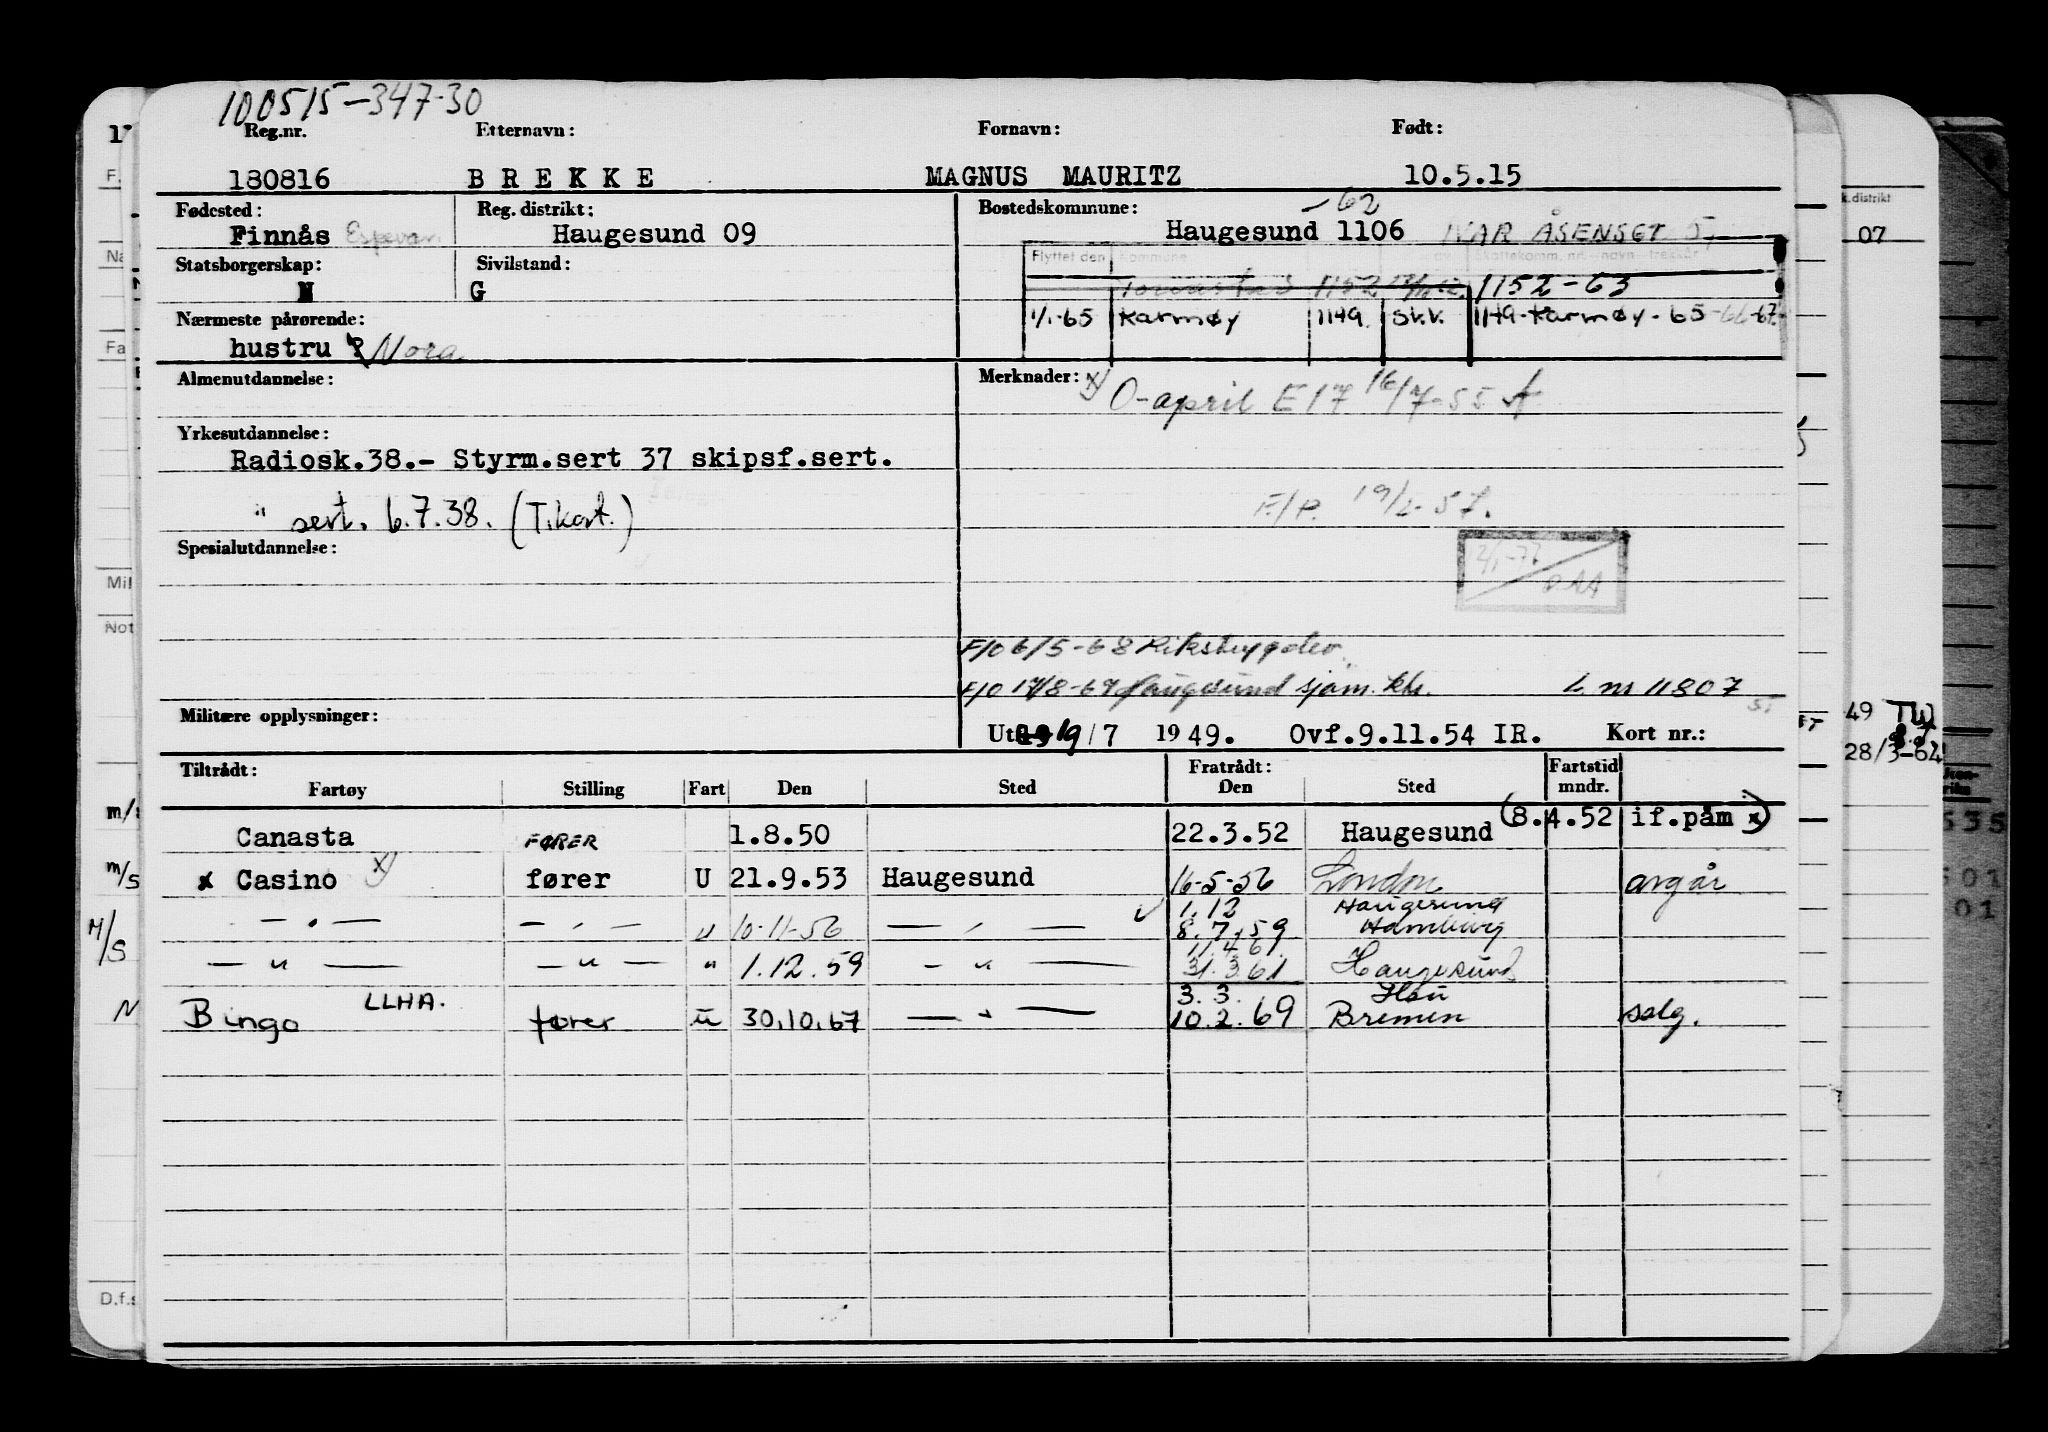 100515-347-30
Reg.nr. Etternavn: Fornavn: Født:
180816 BREKKE MAGNUS MAURITZ 10.5.15
Fødested: Reg. distrikt: Bostedskommune: -62
Finnås Espevær Haugesund 09 Haugesund 1106 IVAR ÅSENSGT
Flyttet den Kommune
Statsborgerskap: Sivilstand:
N G 1152 1152-63
Nærmeste pårørende: 1/1-65 Karmøy 1149. Sk.k. 1149-Karmøy-65-66-67
hustru Nora
Almenutdannelse: Merknader: x) O-april E17 16/7-55
Yrkesutdannelse:
Radiosk.38.- Styrm.sert 37 skipsf.sert.
" sert. 6.7.38. (T.kort.) F/P. 19/2-57.
Spesialutdannelse:
F/O 6/5-68 Rikstrygdev.
Haugesund sjøm. ktr. L nr 11807
Militære opplysninger: 19/7 1949. Ovf.9.11.54 IR. Kort nr.:
Tiltrådt: Fratrådt: Fartstid
Fartøy Stilling Fart Den Sted Den Sted mndr.
Canasta FØRER 1.8.50 22.3.52 Haugesund (8.4.52 if.påm x)
x Casino x) fører U 21.9.53 Haugesund 16-5-56 London avgår
— " — — " — u 10-11-56 — " — 1.12 Haugesund
8.7.59 Hamburg
— " — — " — " 1.12.59 — " — 31.3.61 Haugesund
3.3. Hau
Bingo LLHA. fører u 30.10.67 — " — 10.2.69 Bremen salg.
k.distrikt
07
49
28/3-62
Mil
Not
D.f.
m/s
M/S
N